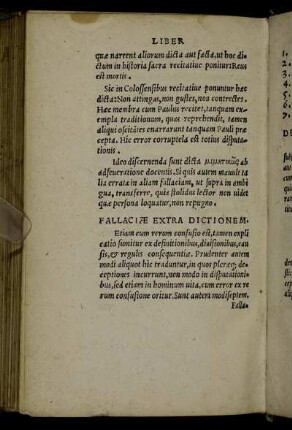 LIBER
quæ narrent aliorum dicta aut facta, ut hoc di-
ctum in historia sacra recitatiue ponitur: Reus
est mortis.
Sic in Colossensibus recitatiue ponuntur hæc
dicta: Non attingas, non gustes, non contrectes.
Hæc membra cum Paulus recitet, tanquam ex-
empla traditionum, quas reprehendit, tamen
aliqui oscitātes enarrarunt tanquam Pauli præ-
cepta. Hic error corruptela est totius disputa-
tionis.
Ideo discernenda sunt dicta μιμητικῶς ab
adseueratione docentis. Si quis autem mauult ta
lia errata in aliam fallaciam, ut supra in ambi
gua, transferre, quia stolidus lector non uidet
quæ persona loquatur, non repugno.
FALLACIÆ EXTRA DICTIONEM.
Etiam cum rerum confusio est, tamen expli
catio sumitur ex definitionibus, diuisionibus, cau
sis, & regulis consequentiæ. Prudenter autem
modi aliquot hic traduntur, in quos pleræq; de-
ceptiones incurrunt, non modo in disputationi-
bus, sed etiam in hominum uita, cum error ex re
rum confusione oritur. Sunt autem modi septem.
Falla-